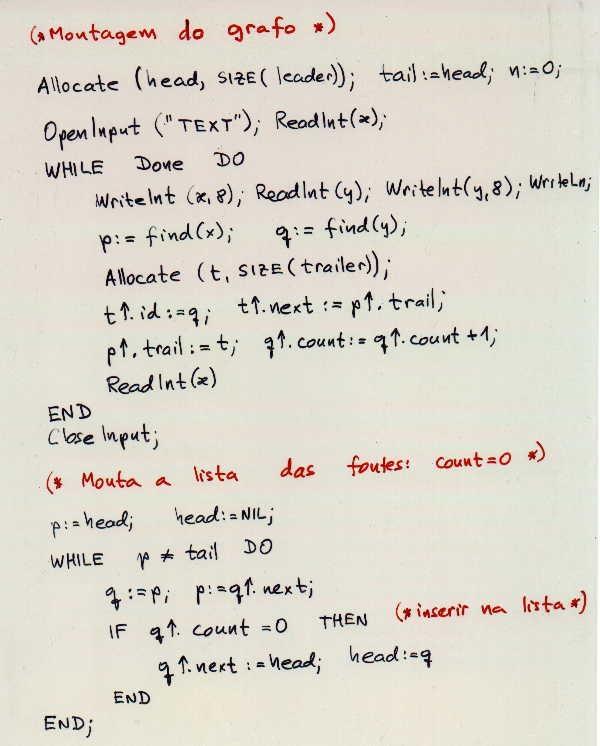 (* Montagem do grafo *)
Allocate (head, SIZE(leader)); tail:=head; n:=0;
OpenInput ("TEXT"); ReadInt(x);
WHILE Done DO
WriteInt (x,8); ReadInt(y); WriteInt(y,8); WriteLn;
p:= find(x); q:= find(y);
Allocate (t, SIZE(trailer));
t↑.id:=q; t↑.next := p↑.trail;
p↑.trail:=t; q↑.count:= q↑.count +1;
ReadInt(x)
END
Close Input;
(* Monta a lista das fontes: count=0 *)
p:=head; head:=NIL;
WHILE p ≠ tail DO
q:=p; p:=q↑.next;
IF q↑.count =0 THEN (*inserir na lista*)
q↑.next:=head; head:=q
END
END;